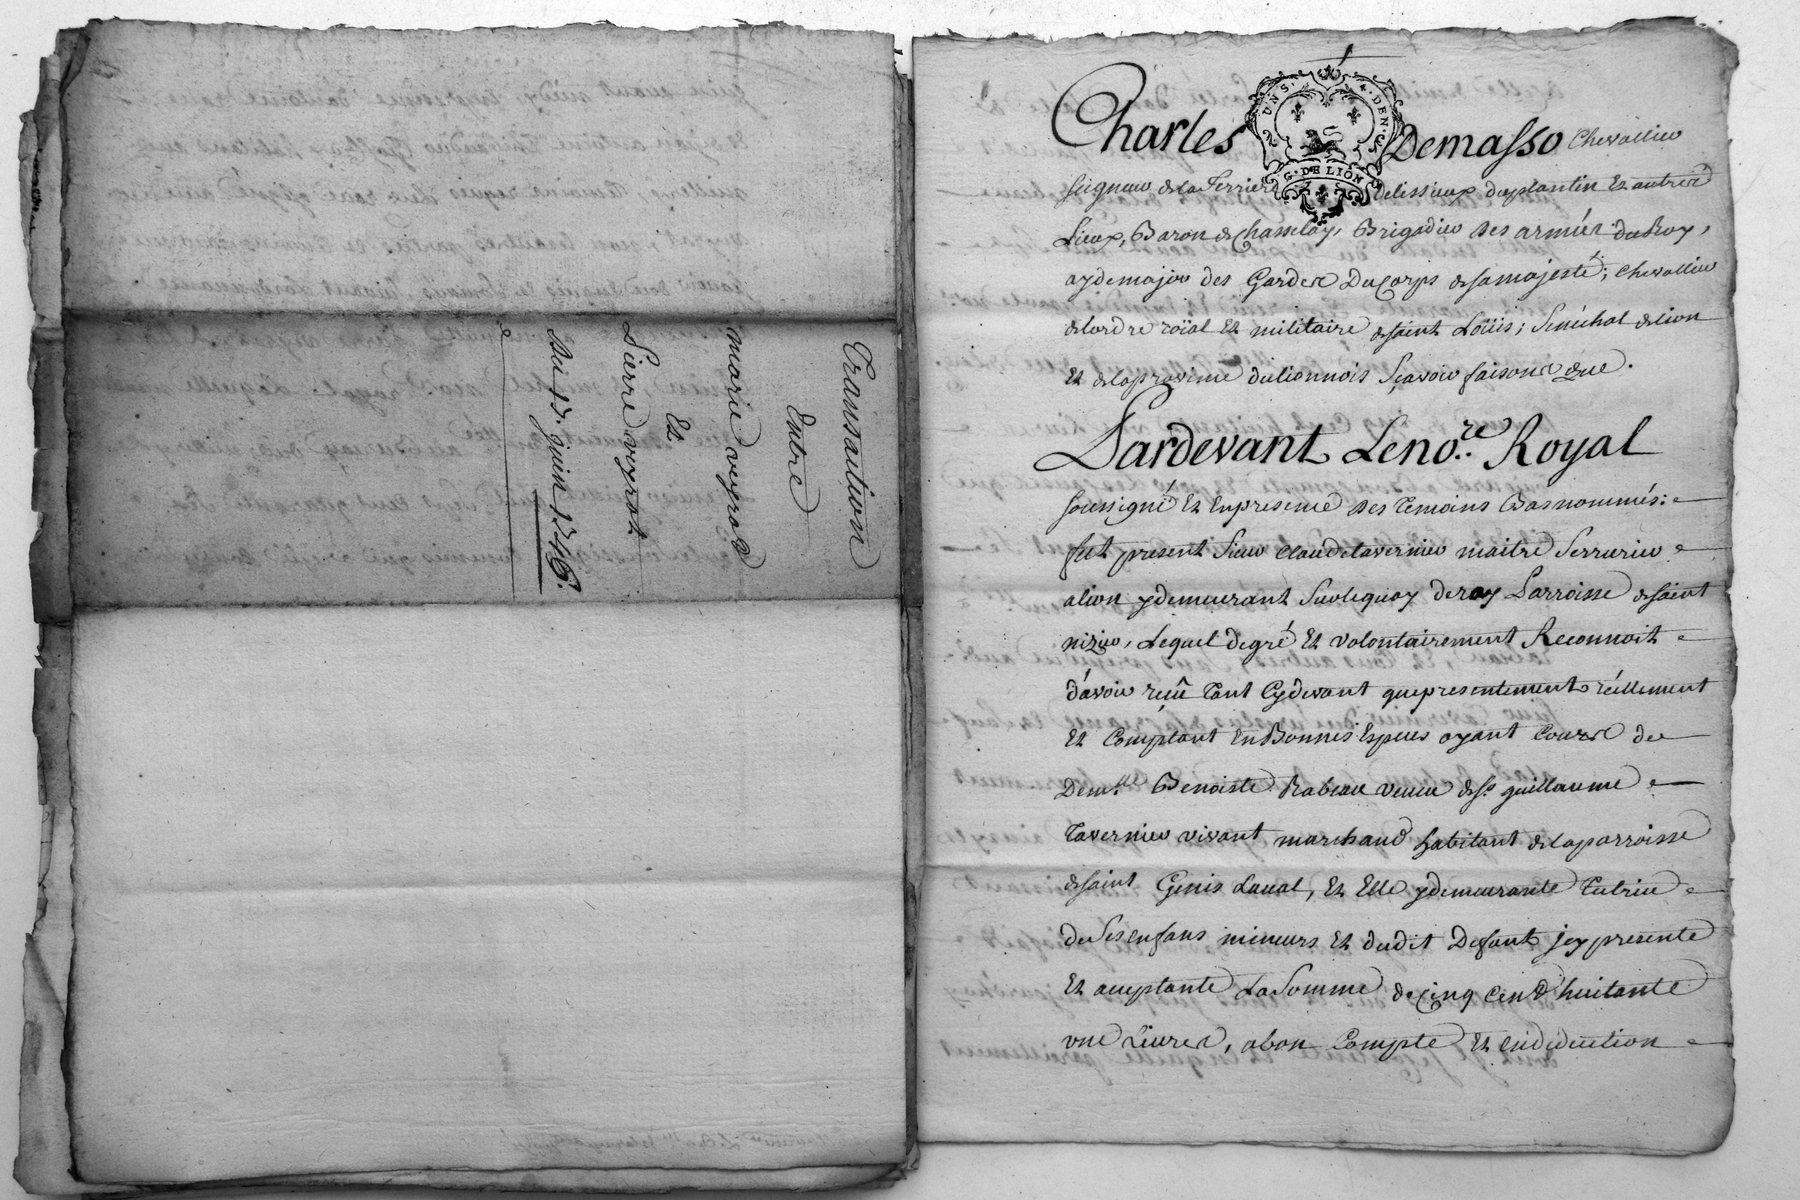 Transaction
Entre
marie veyrat
Et
Pierre veyrat
Du 17. juin 1746.
Charles Demasso Chevallier
UNS. 4. DEN.
G. DE LION
seigneur de la Ferriere delissieux duplantin Et autres
Lieux, Baron de Chasselay, Brigadier des armées du Roy,
aydemajor des Gardes Du Corps de sa majesté; Chevallier
de lordre roïal Et militaire de saint Loüis; Senéchal de lion
Et de la province du lionnois Sçavoir faisons que.
Pardevant Leno.re Royal
soussigné Et En presence des temoins Bas nommés:
fut present Sieur Claude tavernier maitre Serrurier
a lion y demeurant Sur le quay de roy Parroisse de saint
nizier, Lequel de gré Et volontairement Reconnoit
d'avoir reçû tant Cy devant que presentement réellement
Et Comptant En Bonnes Especes ayant Cours de
Dem.lle Benoiste Rabeau veuve de Sr. guillaume
Tavernier vivant marchand habitant de la parroisse
de saint Genis Laval, Et Elle y demeurante Tutrice
de Ses enfans mineurs Et dudit Defunt jcy presente
Et acceptante La Somme de Cinq Cent huitante
une Livres, a bon Compte Et en deduction